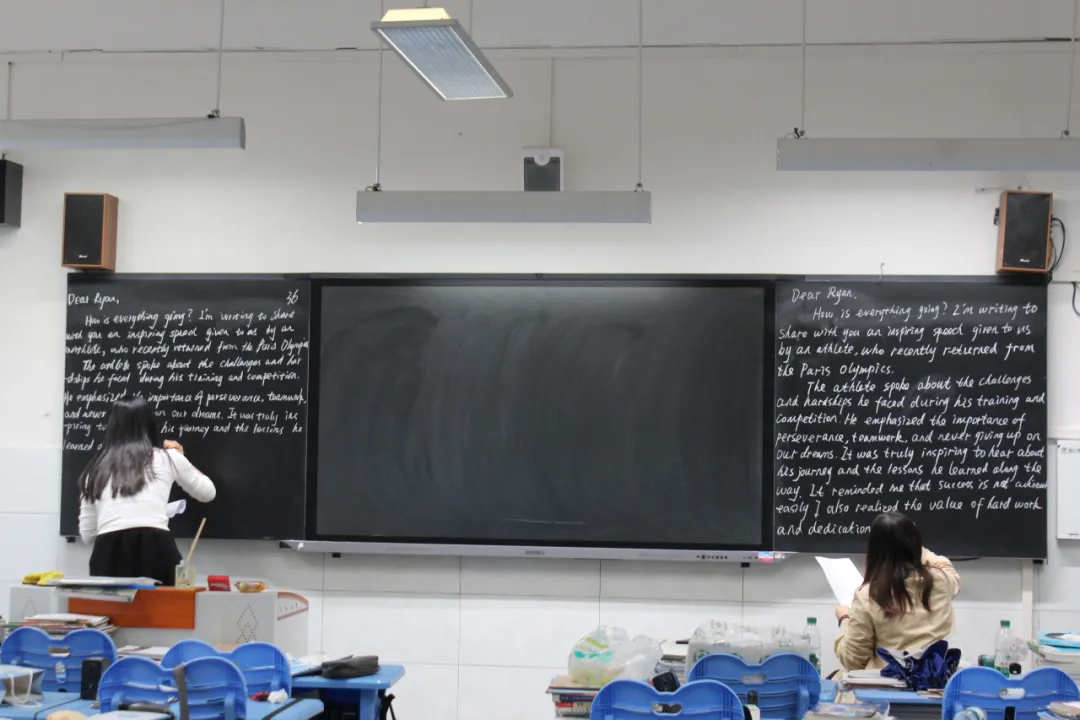 Dear Ryan,
36
How is everything going? I'm writing to share
with you an inspiring speech given to us by an
athlete, who recently returned from the Paris Olympic
The athlete spoke about the challenges and har
-dships he faced during his training and competition.
He emphasized the importance of perseverance, teamwork,
and never on our dreams. It was truly ins
-piring to his journey and the lessons he
learned
Dear Ryan,
How is everything going? I'm writing to
share with you an inspiring speech given to us
by an athlete, who recently returned from
the Paris Olympics.
The athlete spoke about the challenges
and hardships he faced during his training and
competition. He emphasized the importance of
perseverance, teamwork, and never giving up on
our dreams. It was truly inspiring to hear about
his journey and the lessons he learned along the
way. It reminded me that success is not achieved
easily I also realized the value of hard work
and dedication